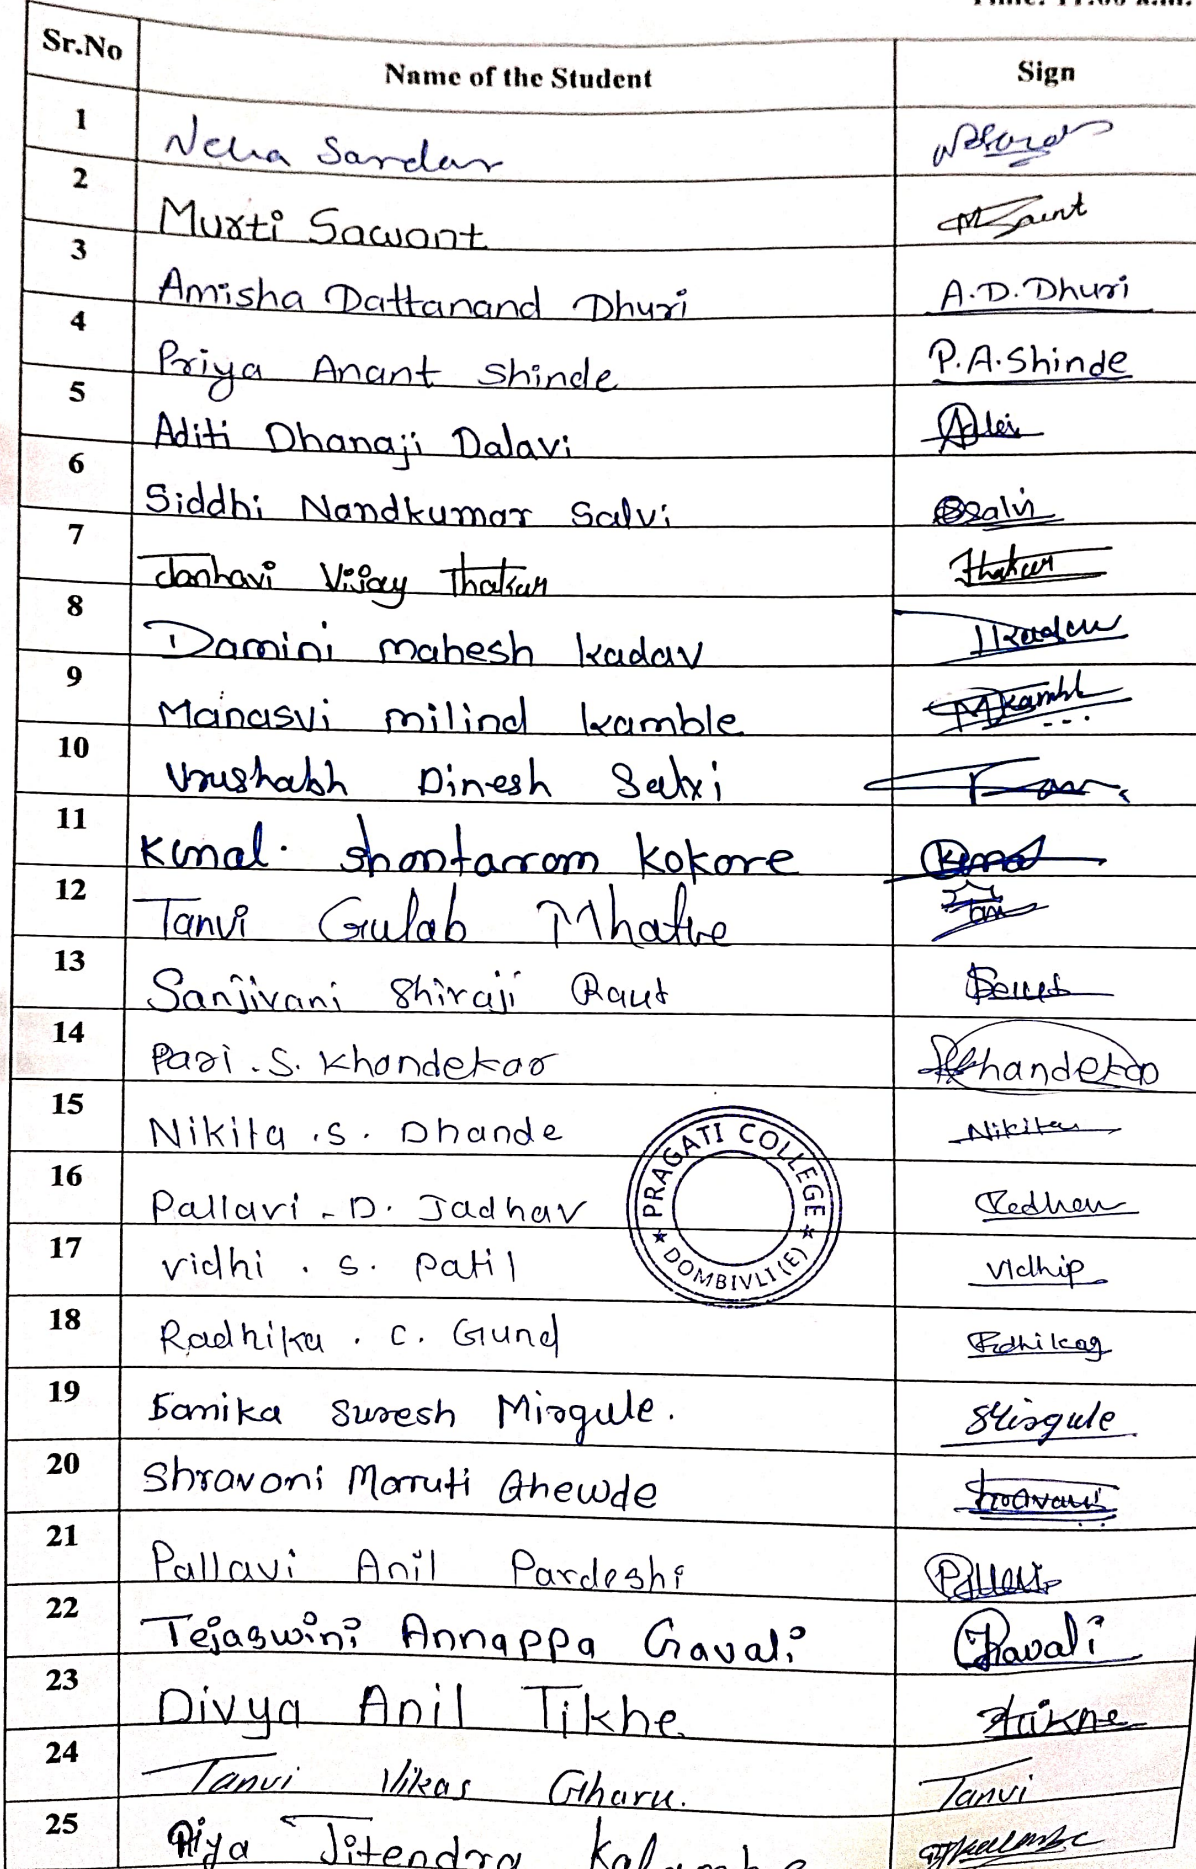 Time: 11:00 a.m.
Sr.No Name of the Student Sign
1 Neha Sardar
2 Murti Sawant MSaint
3 Amisha Dattanand Dhuri A.D.Dhuri
4 Priya Anant Shinde P.A.Shinde
5 Aditi Dhanaji Dalavi
6 Siddhi Nandkumar Salvi SSalvi
7 Janhavi Vijay Thakur Thakur
8 Damini mahesh kadav
9 Manasvi milind kamble Mkambl
10 Vrushabh Dinesh Salvi
11 Kinal. Shantaram Kokare Kinal
12 Tanvi Gulab Mhatre
13 Sanjivani Shivaji Raut
14 Pari .S. Khandekar Khandekar
15 Nikita .S. Dhande Nikita
PRAGATI COLLEGE
16 Pallavi - D. Jadhav
17 vidhi . S. Patil Vidhip
DOMBIVLI (E)
18 Radhika . C. Gund Radhikag
19 Samika Suresh Mirgule. SMirgule
20 Shravani Maruti Ghewde Shravani
21 Pallavi Anil Pardeshi
22 Tejaswini Annappa Gavali Gavali
23 Divya Anil Tikhe
24 Tanvi Vikas Gharu. Tanvi
25 Riya Jitendra